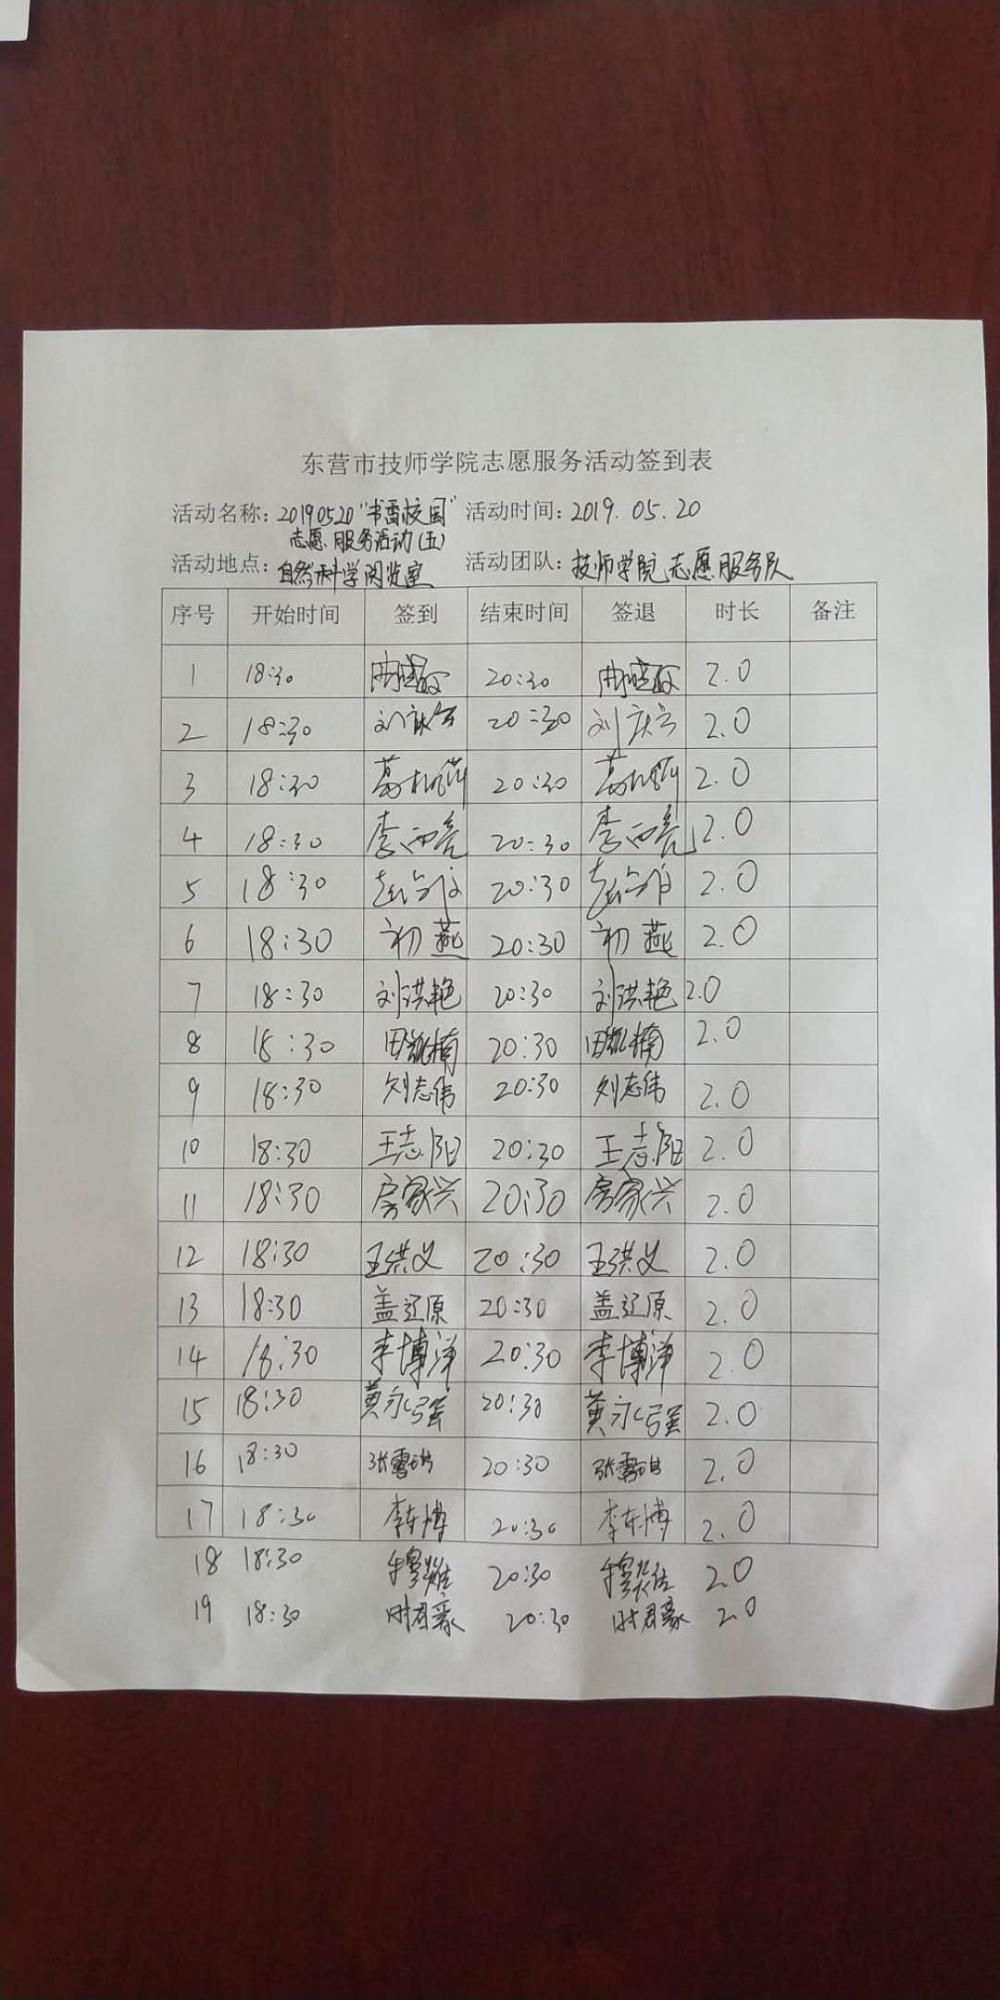 东营市技师学院志愿服务活动签到表
活动名称：20190520“书香校园” 活动时间：2019.05.20
志愿服务活动（五）
活动地点：自然科学阅览室 活动团队：技师学院志愿服务队
序号 开始时间 签到 结束时间 签退 时长 备注
1 18:30 20:30 2.0
2 18:30 刘庆 20:30 刘庆 2.0
3 18:30 20:30 2.0
4 18:30 李雨亮 20:30 李雨亮 2.0
5 18:30 20:30 2.0
6 18:30 初燕 20:30 初燕 2.0
7 18:30 刘洪艳 20:30 刘洪艳 2.0
8 18:30 田凯楠 20:30 田凯楠 2.0
9 18:30 刘志伟 20:30 刘志伟 2.0
10 18:30 王志阳 20:30 王志阳 2.0
11 18:30 房家兴 20:30 房家兴 2.0
12 18:30 王洪义 20:30 王洪义 2.0
13 18:30 盖辽原 20:30 盖辽原 2.0
14 18:30 李博洋 20:30 李博洋 2.0
15 18:30 黄永强 20:30 黄永强 2.0
16 18:30 张雪琪 20:30 张雪琪 2.0
17 18:30 李东博 20:30 李东博 2.0
18 18:30 20:30 2.0
19 18:30 时君豪 20:30 时君豪 2.0